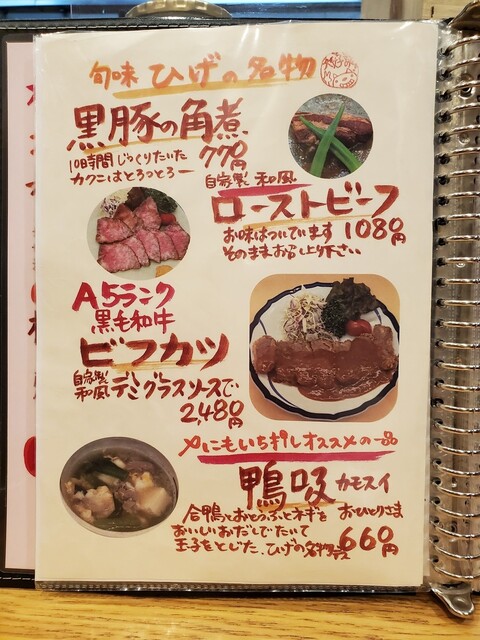 旬味 ひげの名物
黒豚の角煮
10時間じっくりたいた
カクニはとろっとろー
770円
自家製 和風
ローストビーフ
お味はついています
そのままお召し上り下さい
1080円
A5ランク
黒毛和牛
ビフカツ
自家製
和風 デミグラスソースで
2,480円
オススメの一品
鴨吸 カモスイ
合鴨とおとうふとネギを おひとりさま
おいしいおだしでたいて
玉子をとじた、ひげの名物 660円